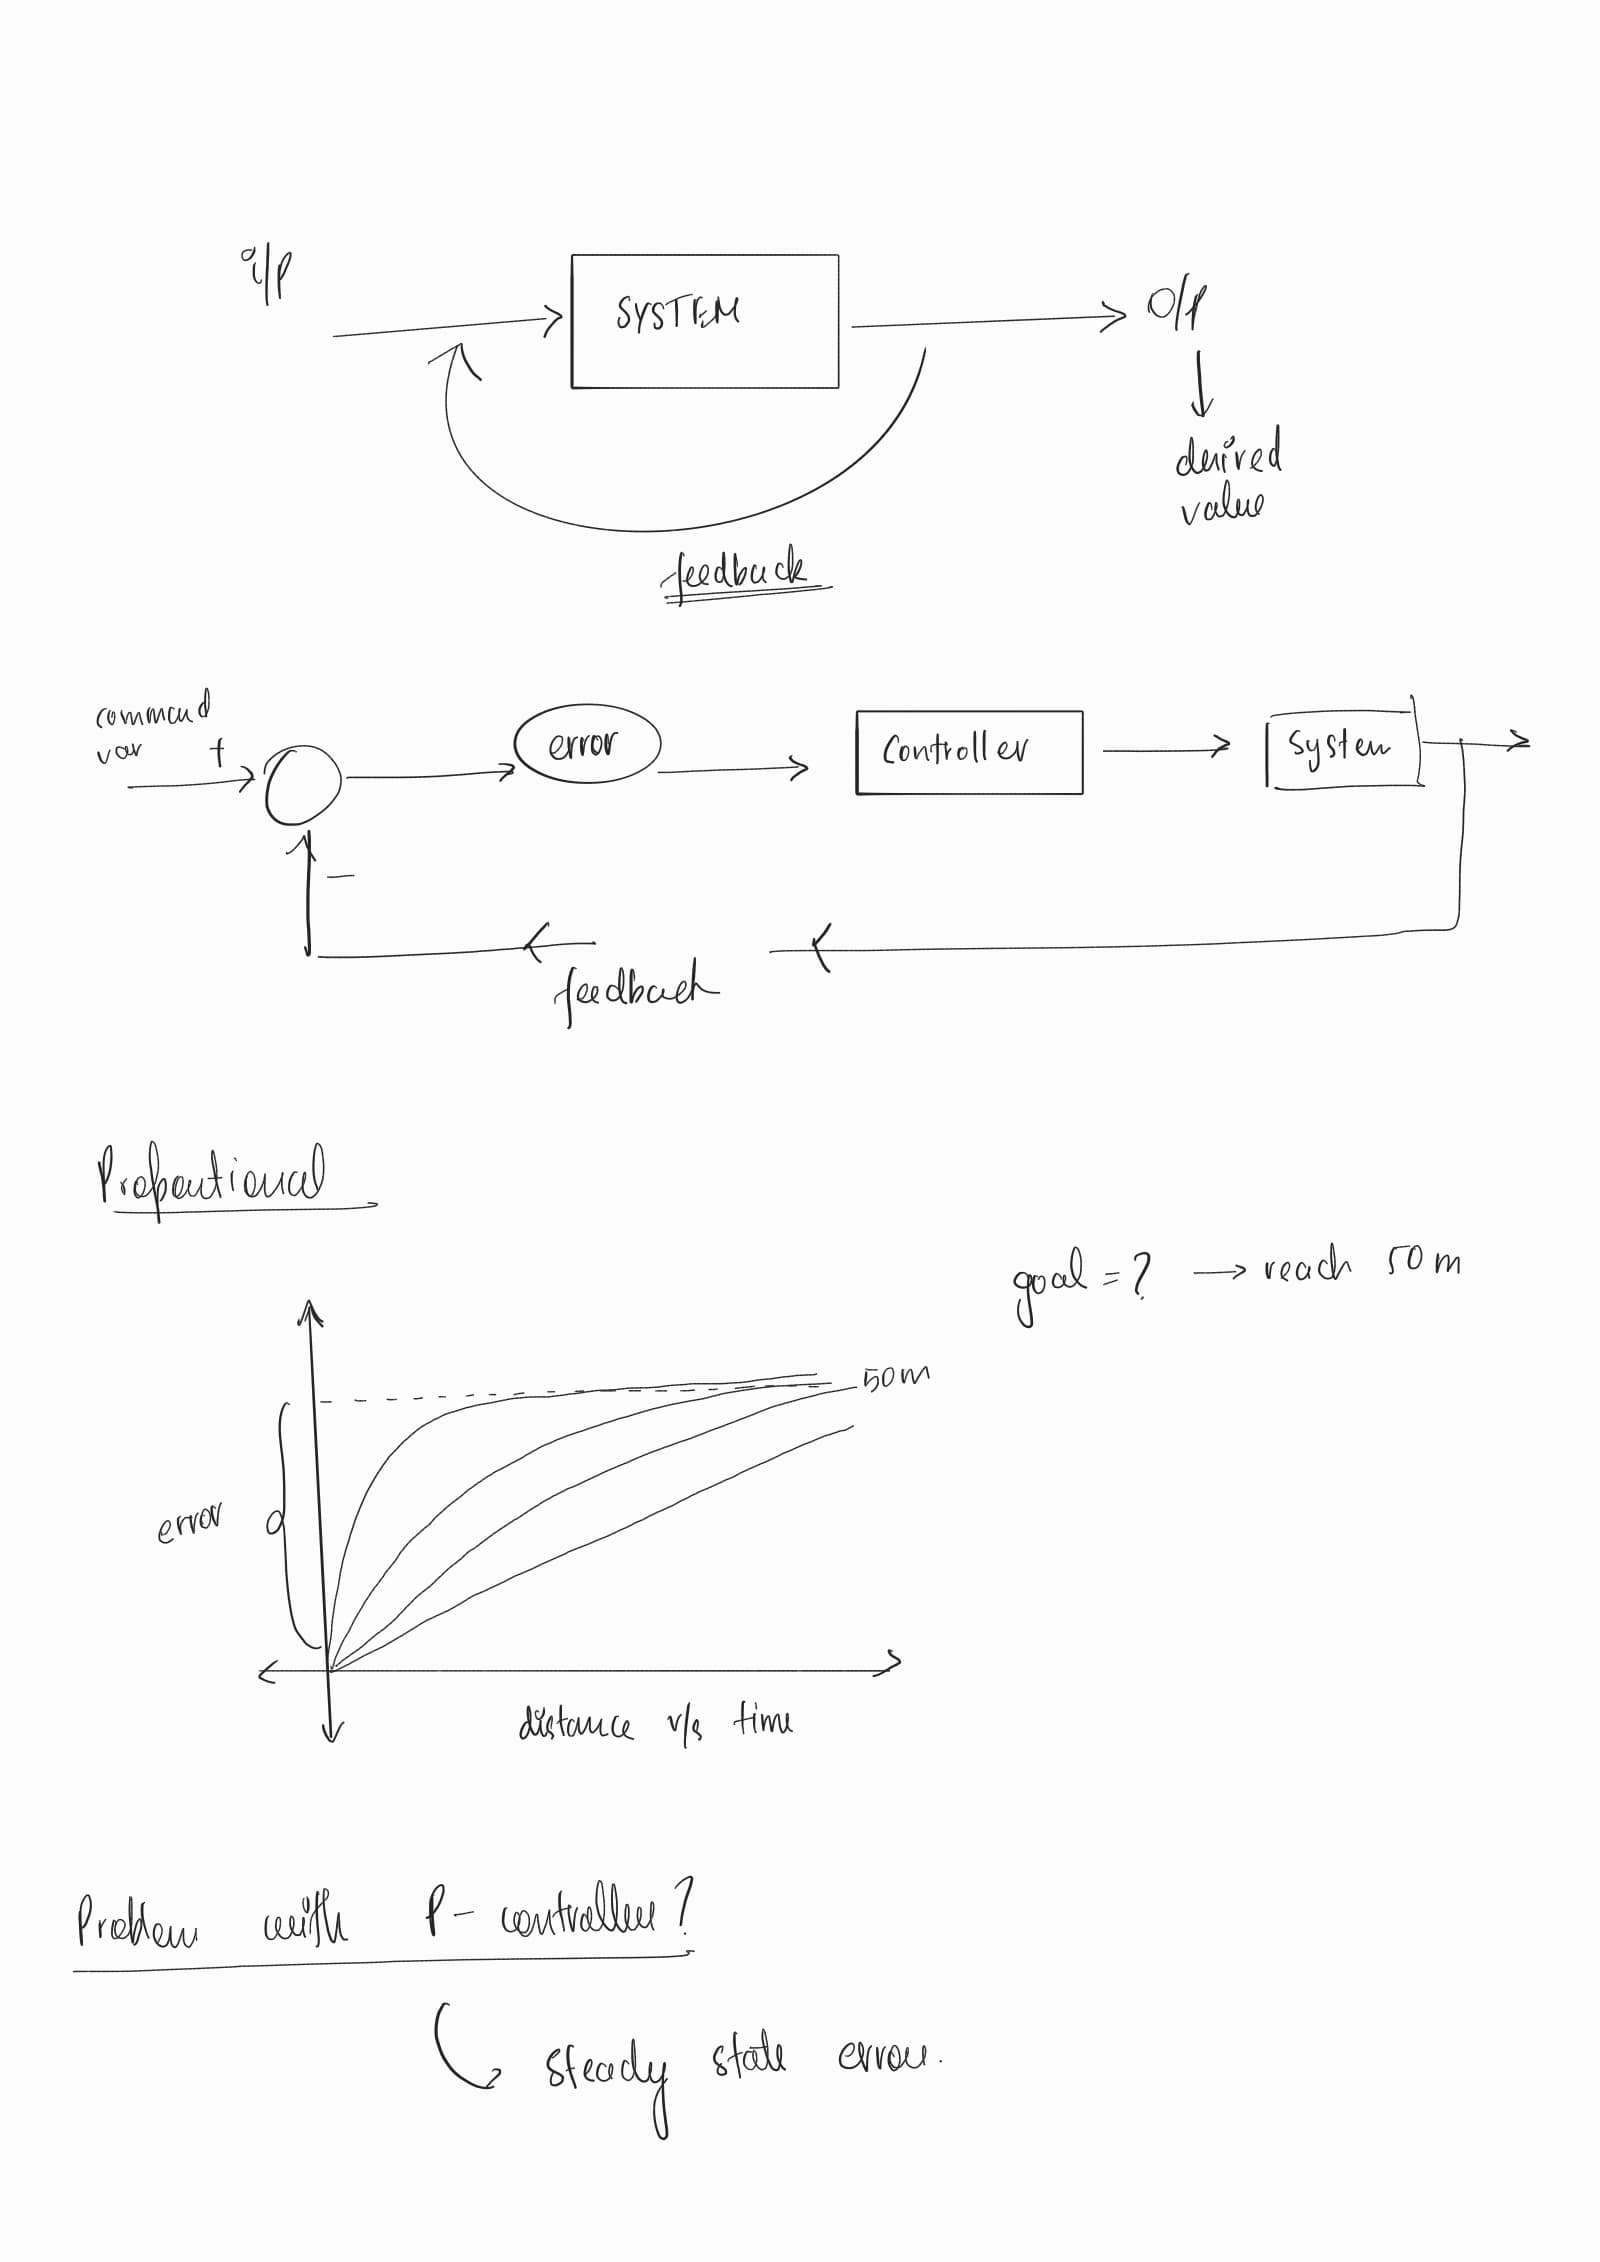 i/p
SYSTEM
O/P
desired
value
feedback
command
var +
error
Controller
System
-
feedback
Propoutional
goal = ? → reach 50 m
50m
error
distance v/s time
Problem with P- controller?
steady state error.